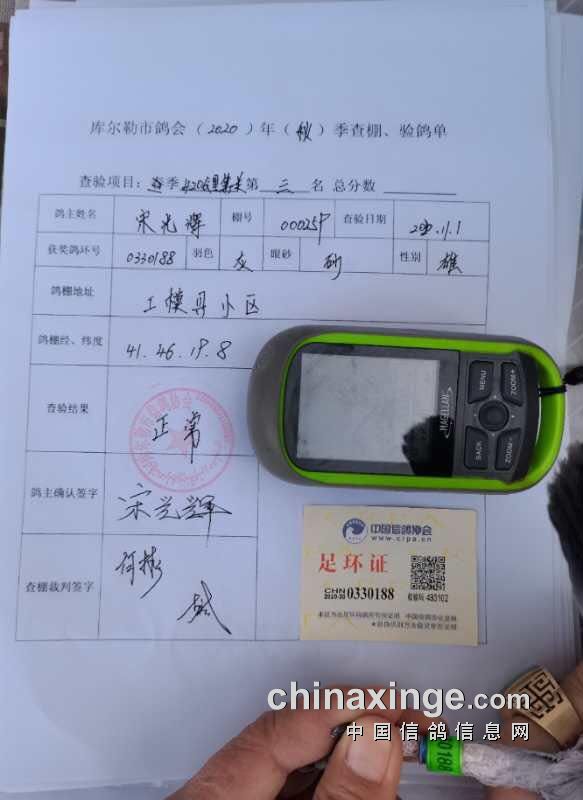 库尔勒市鸽会（2020）年（秋）季查棚、验鸽单
查验项目：春季420公里第三名 总分数
鸽主姓名 宋光辉 棚号 000257 查验日期 2020.11.1
获奖鸽环号 0330188 羽色 灰 眼砂 砂 性别 雄
鸽棚地址 工模具小区
鸽棚经、纬度 41.46.19.8
查验结果 正常
鸽主确认签字 宋光辉
查棚裁判签字
MENU
ZOOM+
BACK
ZOOM-
MAGELLAN
中国信鸽协会
www.crpa.cn
足环证
CHN
0330188
chinaxinge.com
中国信鸽信息网
0188